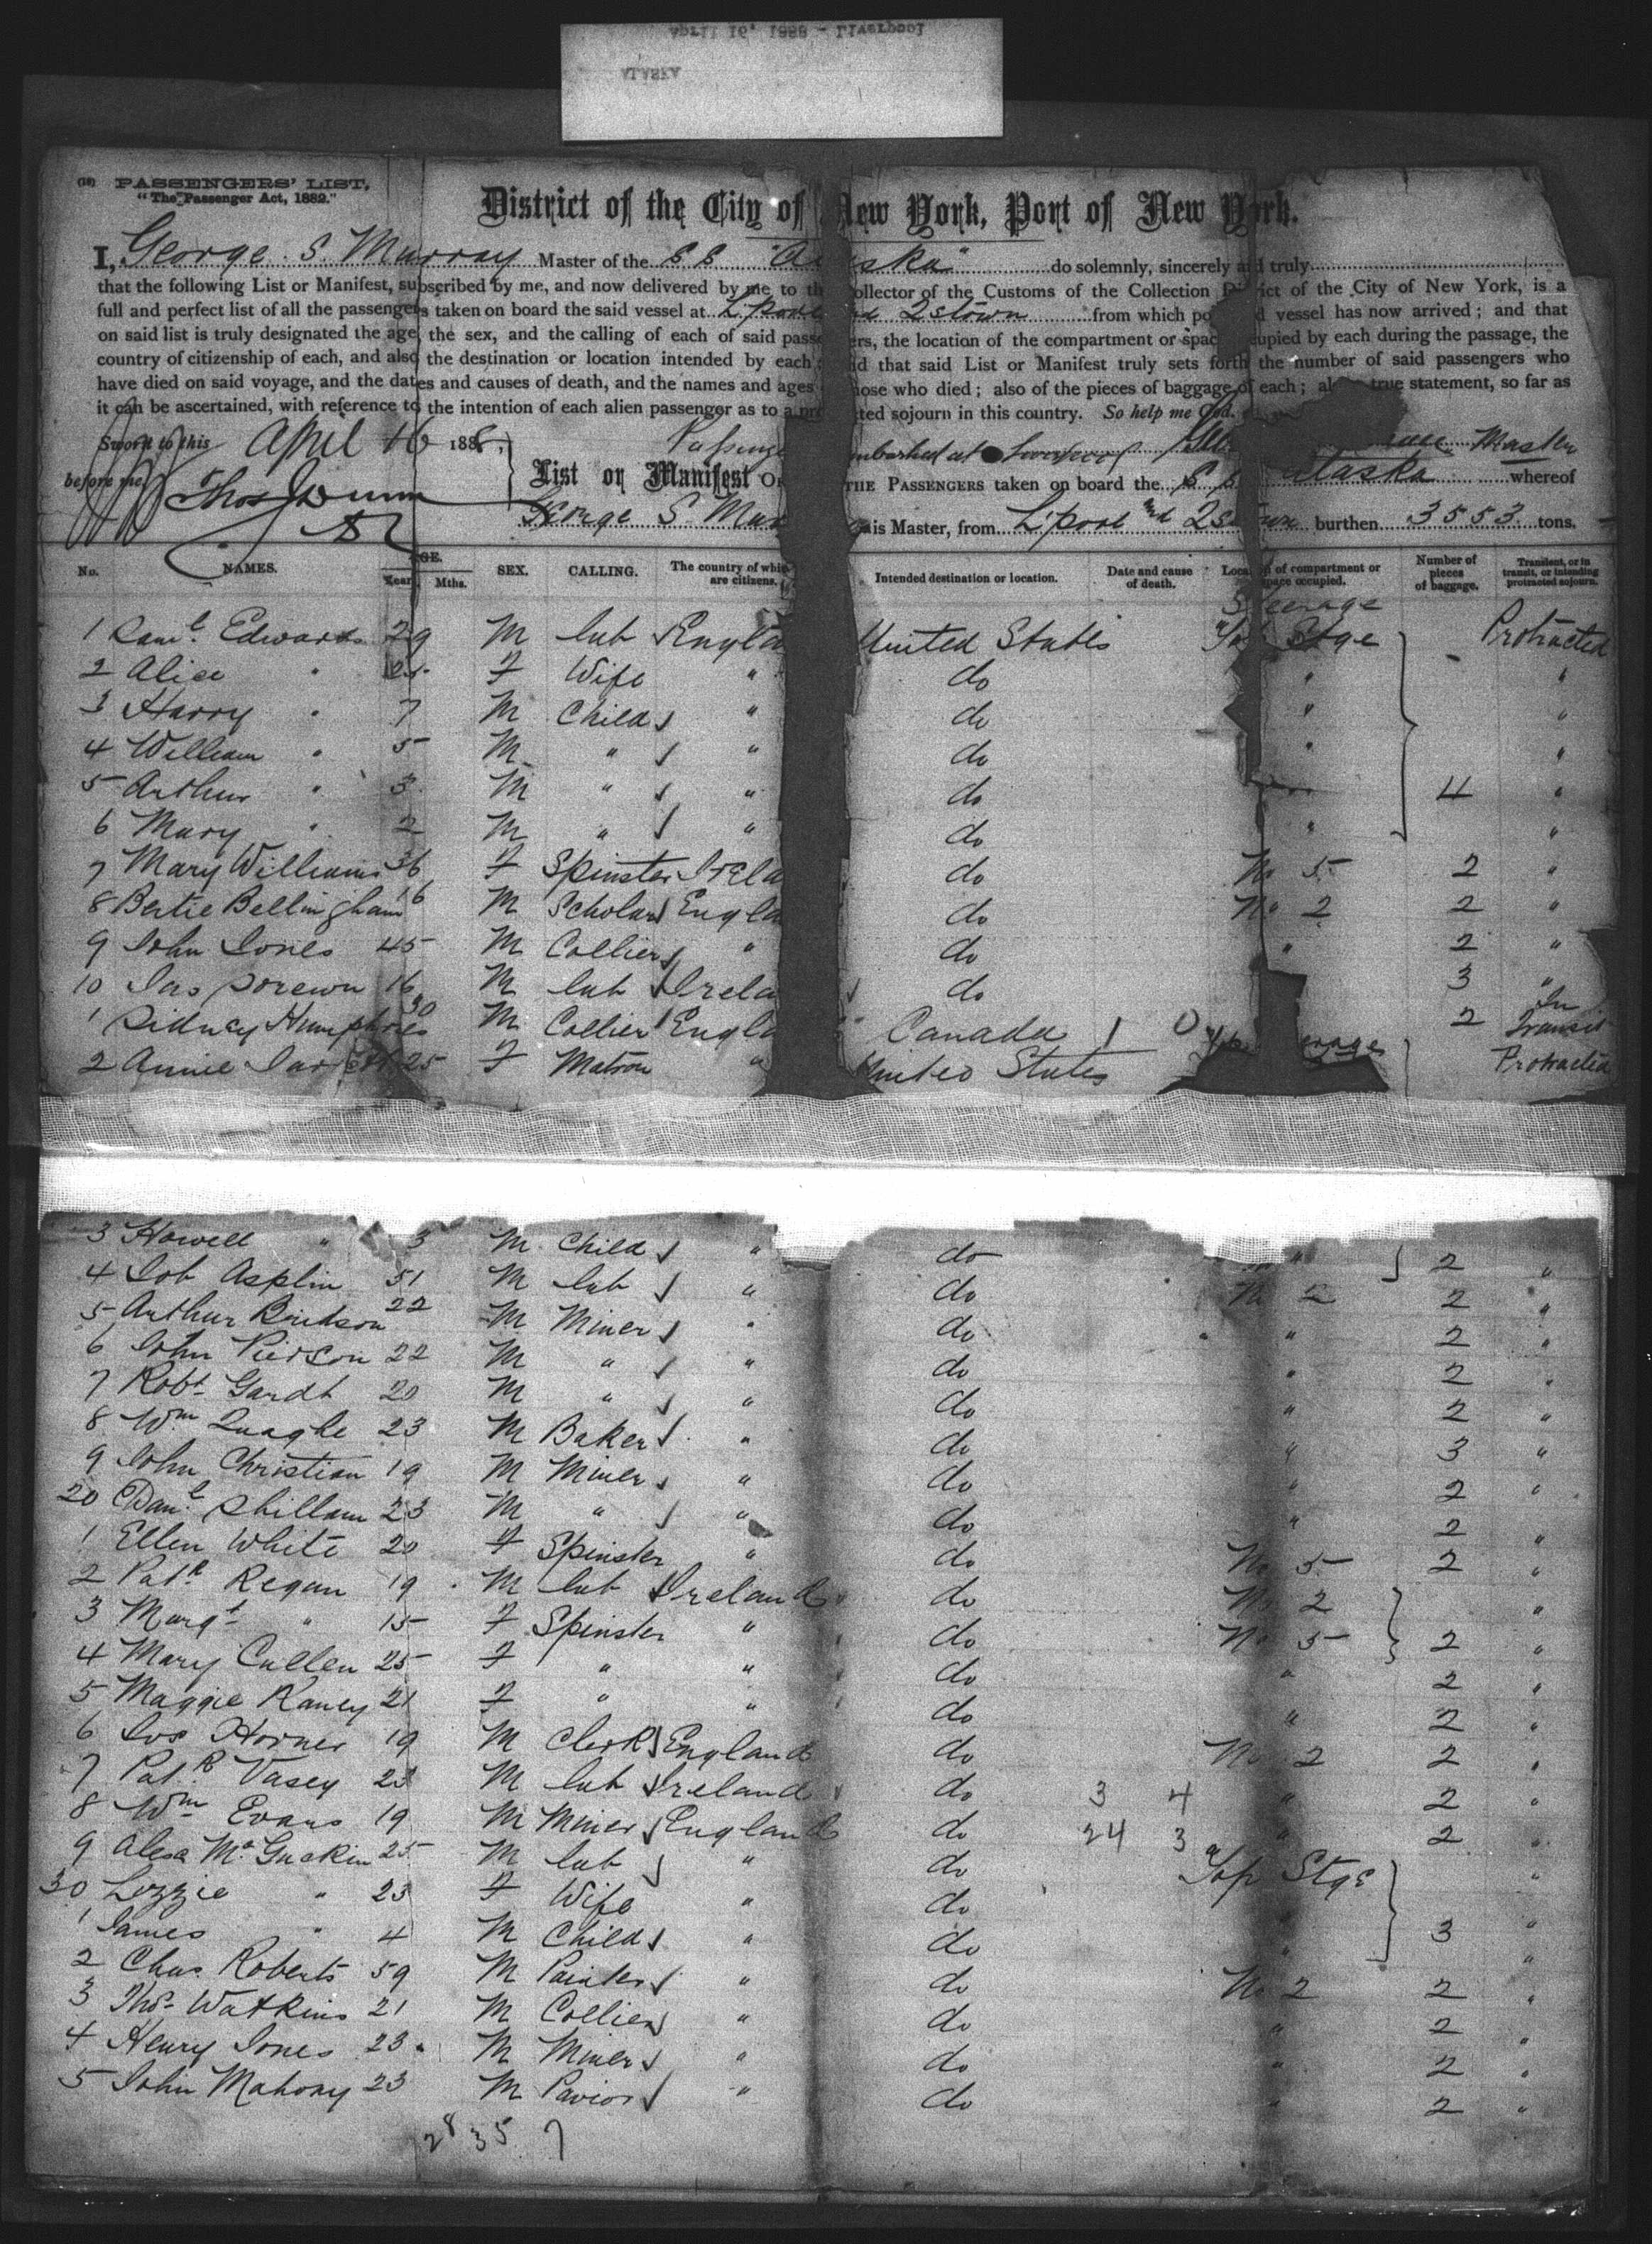 April 16, 1888 - Liverpool
ALASKA
(18) PASSENGERS' LIST,
"The Passenger Act, 1882."
District of the City of New York, Port of New York.
I, George S. Murray Master of the SS "Alaska" do solemnly, sincerely and truly
that the following List or Manifest, subscribed by me, and now delivered by me to the Collector of the Customs of the Collection District of the City of New York, is a
full and perfect list of all the passengers taken on board the said vessel at L'pool and Qstown from which port said vessel has now arrived; and that
on said list is truly designated the age, the sex, and the calling of each of said passengers, the location of the compartment or space occupied by each during the passage, the
country of citizenship of each, and also the destination or location intended by each; and that said List or Manifest truly sets forth the number of said passengers who
have died on said voyage, and the dates and causes of death, and the names and ages of those who died; also of the pieces of baggage of each; also a true statement, so far as
it can be ascertained, with reference to the intention of each alien passenger as to a protracted sojourn in this country. So help me God.
Sworn to this April 16 1888, Passengers embarked at Liverpool Master
before me Thos J Dunn
List or Manifest OF THE PASSENGERS taken on board the SS Alaska whereof
George S Murray is Master, from L'pool and Qstown burthen 3553 tons.
No. NAMES. AGE. Years Mths. SEX. CALLING. The country of which they are citizens. Intended destination or location. Date and cause of death. Location of compartment or space occupied. Number of pieces of baggage. Transient, or in transit, or intending protracted sojourn.
Steerage
1 Saml. Edwards 29 M lab England United States Top Stge Protracted
2 Alice " 25 F Wife " do " "
3 Harry " 7 M Child " do " "
4 William " 5 M " " do " "
5 Arthur " 3 M " " do 4 "
6 Mary " 2 M " " do " "
7 Mary Williams 36 F Spinster Irela do No 5 2 "
8 Bertie Bellingham 16 M Scholar Engla do No 2 2 "
9 John Jones 45 M Collier " do " 2 "
10 Jas 16 M lab Irela do 3 "
1 Sidney Humphries 30 M Collier Engla Canada 1 0 2 In Transit
2 Annie 25 F Matron " United States Protracted
3 Howell " 3 M Child " do " 2 "
4 Job Asplin 51 M lab " do No 2 2 "
5 Arthur 22 M Miner " do " 2 "
6 John Pierson 22 M " " do " 2 "
7 Robt. 20 M " " do " 2 "
8 Wm 23 M Baker " do " 3 "
9 John Christian 19 M Miner " do " 2 "
20 Danl. 23 M " " do " 2 "
1 Ellen White 20 F Spinster " do No 5 2 "
2 Patk Regan 19 M lab Ireland do No 2 "
3 Margt " 15 F Spinster " do No 5 2 "
4 Mary Cullen 25 F " " do " 2 "
5 Maggie Raney 21 F " " do " 2 "
6 Jos Horner 19 M Clerk England do No 2 2 "
7 Patk Vasey 23 M lab Ireland do 3 4 " 2 "
8 Wm Evans 19 M Miner England do 24 3 " 2 "
9 Alexa McGuckin 25 M lab " do Top Stge "
30 Lizzie " 23 F Wife " do " "
1 James " 4 M Child " do " 3 "
2 Chas. Roberts 59 M Painter " do No 2 2 "
3 Thos. Watkins 21 M Collier " do " 2 "
4 Henry Jones 23 M Miner " do " 2 "
5 John Mahony 23 M Pavior " do " 2 "
28 35 7